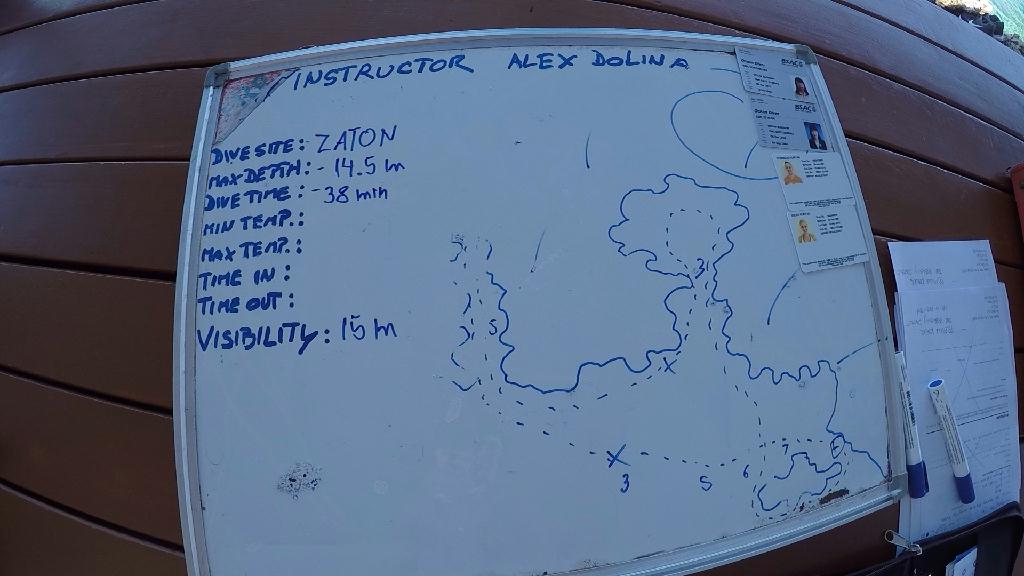 INSTRUCTOR ALEX DOLINA
DIVE SITE: ZATON
MAX DEPTH: - 14.5 m
DIVE TIME: - 38 min
MIN TEMP.:
MAX TEMP.:
TIME IN:
TIME OUT:
VISIBILITY: 15 m
BSAC
BSAC
3
5
X
X
3
5
6
7